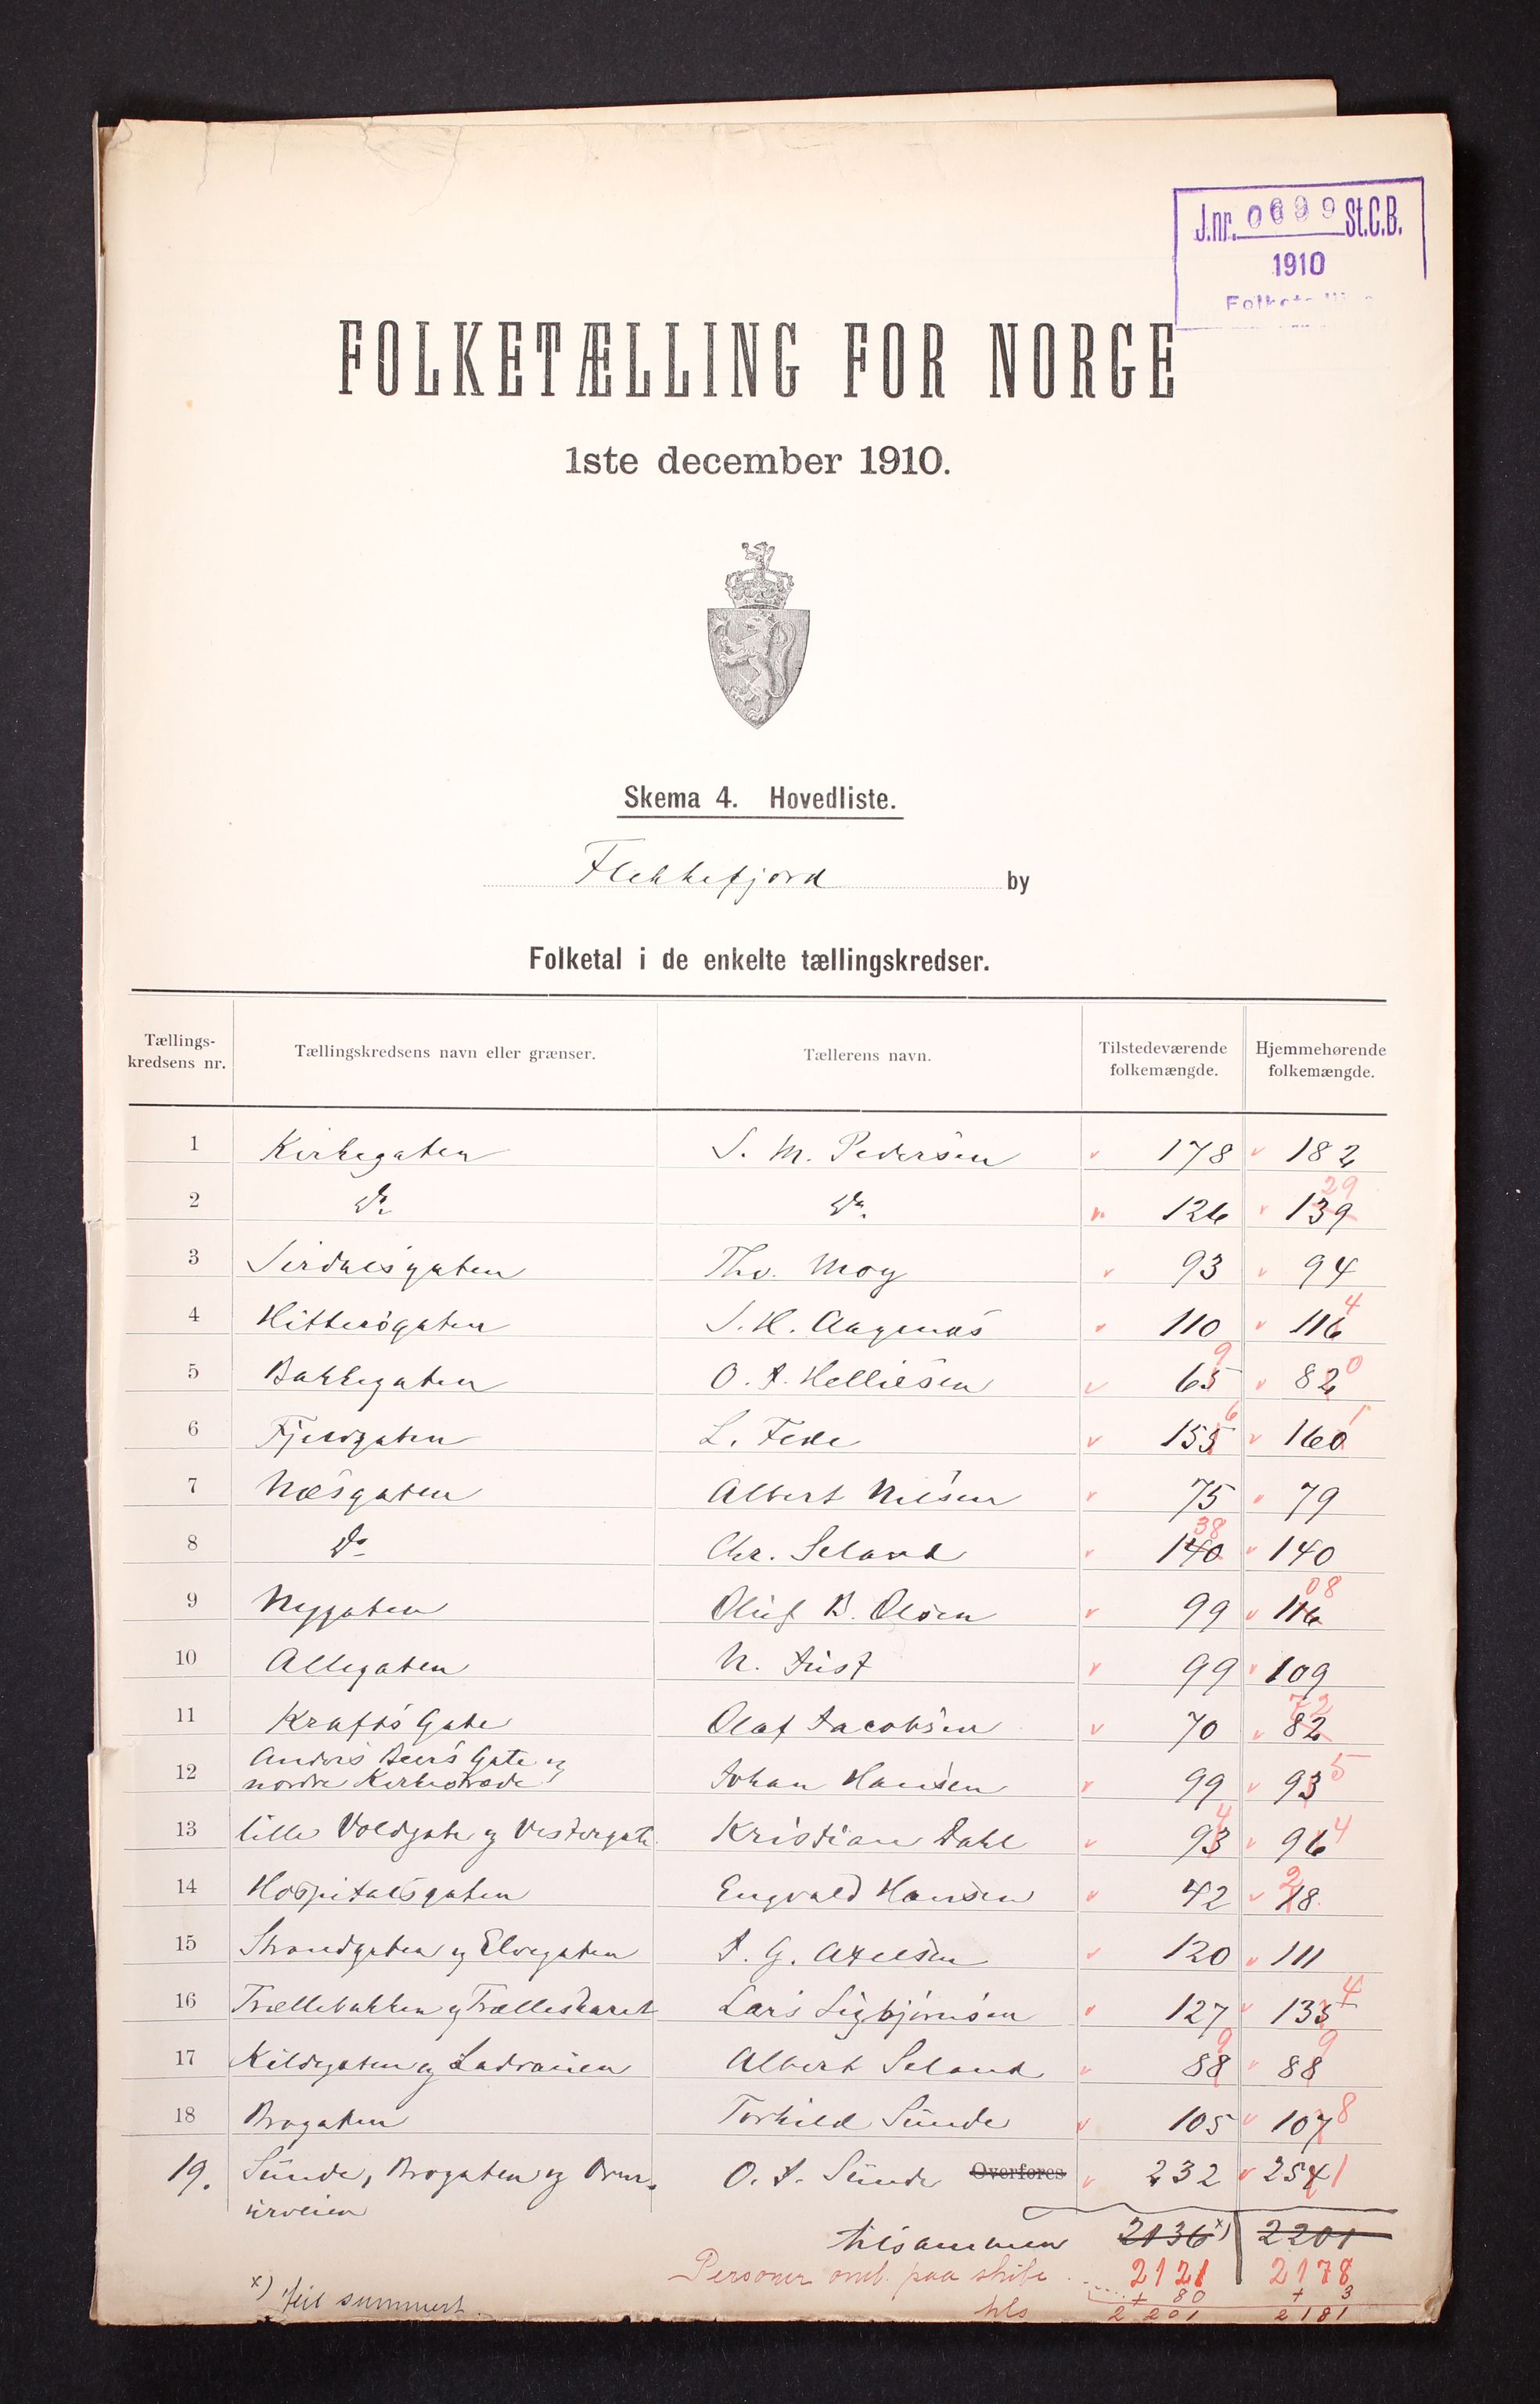 J.nr. 0699 St.C.B.
1910
FOLKETÆLLING FOR NORGE
1ste december 1910.
Skema 4. Hovedliste.
Flekkefjord by
Folketal i de enkelte tællingskredser.
Tællings-kredsens nr. Tællingskredsens navn eller grænser. Tællerens navn. Tilstedeværende folkemængde. Hjemmehørende folkemængde.
1 Kirkegaten S. M. Pedersen v 178 v 182
2 Do Do. v 126 v 139 29
3 Sirdalsgaten Thv. Moy v 93 v 94
4 Hitterøgaten S. K. Aagenæs v 110 v 116 4
5 Bakkegaten O. J. Helliesen v 65 9 v 82 0
6 Fjeldgaten L. Fede v 155 6 v 160 1
7 Næsgaten Albert Nilsen v 75 v 79
8 Do Chr. Seland v 140 38 v 140
9 Nygaten Oluf B. Olsen v 99 v 116 08
10 Allegaten N. Just v 99 v 109
11 Krafts Gate Olaf Jacobsen v 70 v 82 72
12 Anders Beers Gate og nordre Kirkestræde Johan Hansen v 99 v 93 5
13 lille Voldgate og Vestergate Kristian Dahl v 93 4 v 96 4
14 Hospitalsgaten Engvald Hansen v 42 v 18 2
15 Strandgaten og Elvegaten J. G. Axelsen v 120 v 111
16 Trællebakken og Trælleskaret Lars Sigbjørnsen v 127 v 135 4
17 Kildegaten og Ladveien Albert Seland v 88 9 v 88 9
18 Brogaten Torkild Sunde v 105 v 107 8
19. Sunde, Brogaten og Overurveien O. J. Sunde Overføres v 232 v 254 1
tilsammen 2136 x) 2201
Personer omb. paa skibe 2121 2178
+ 80 + 3
x) feil summert.
tils 2201 2181